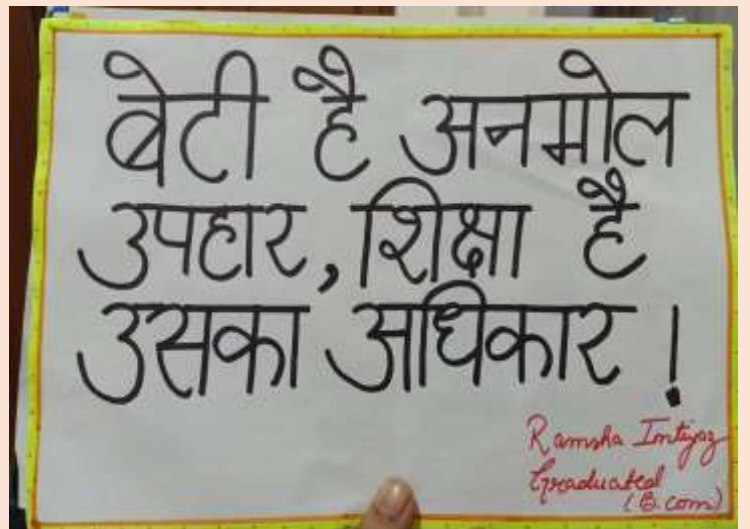 बेटी है अनमोल
उपहार, शिक्षा है
उसका अधिकार !
Ramsha Imtiyaz
Graduated
(B.com)